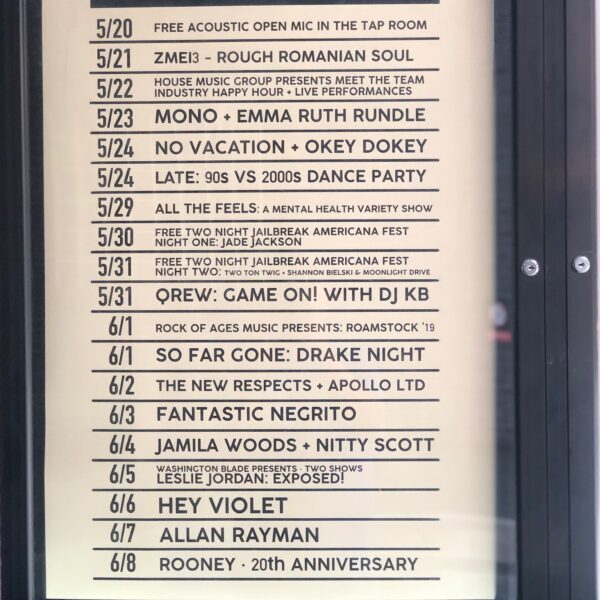 5/20 FREE ACOUSTIC OPEN MIC IN THE TAP ROOM
5/21 ZMEI3 - ROUGH ROMANIAN SOUL
5/22 HOUSE MUSIC GROUP PRESENTS MEET THE TEAM
INDUSTRY HAPPY HOUR + LIVE PERFORMANCES
5/23 MONO + EMMA RUTH RUNDLE
5/24 NO VACATION + OKEY DOKEY
5/24 LATE: 90s VS 2000s DANCE PARTY
5/29 ALL THE FEELS: A MENTAL HEALTH VARIETY SHOW
5/30 FREE TWO NIGHT JAILBREAK AMERICANA FEST
NIGHT ONE: JADE JACKSON
5/31 FREE TWO NIGHT JAILBREAK AMERICANA FEST
NIGHT TWO: TWO TON TWIG + SHANNON BIELSKI & MOONLIGHT DRIVE
5/31 QREW: GAME ON! WITH DJ KB
6/1 ROCK OF AGES MUSIC PRESENTS: ROAMSTOCK '19
6/1 SO FAR GONE: DRAKE NIGHT
6/2 THE NEW RESPECTS + APOLLO LTD
6/3 FANTASTIC NEGRITO
6/4 JAMILA WOODS + NITTY SCOTT
6/5 WASHINGTON BLADE PRESENTS · TWO SHOWS
LESLIE JORDAN: EXPOSED!
6/6 HEY VIOLET
6/7 ALLAN RAYMAN
6/8 ROONEY · 20th ANNIVERSARY